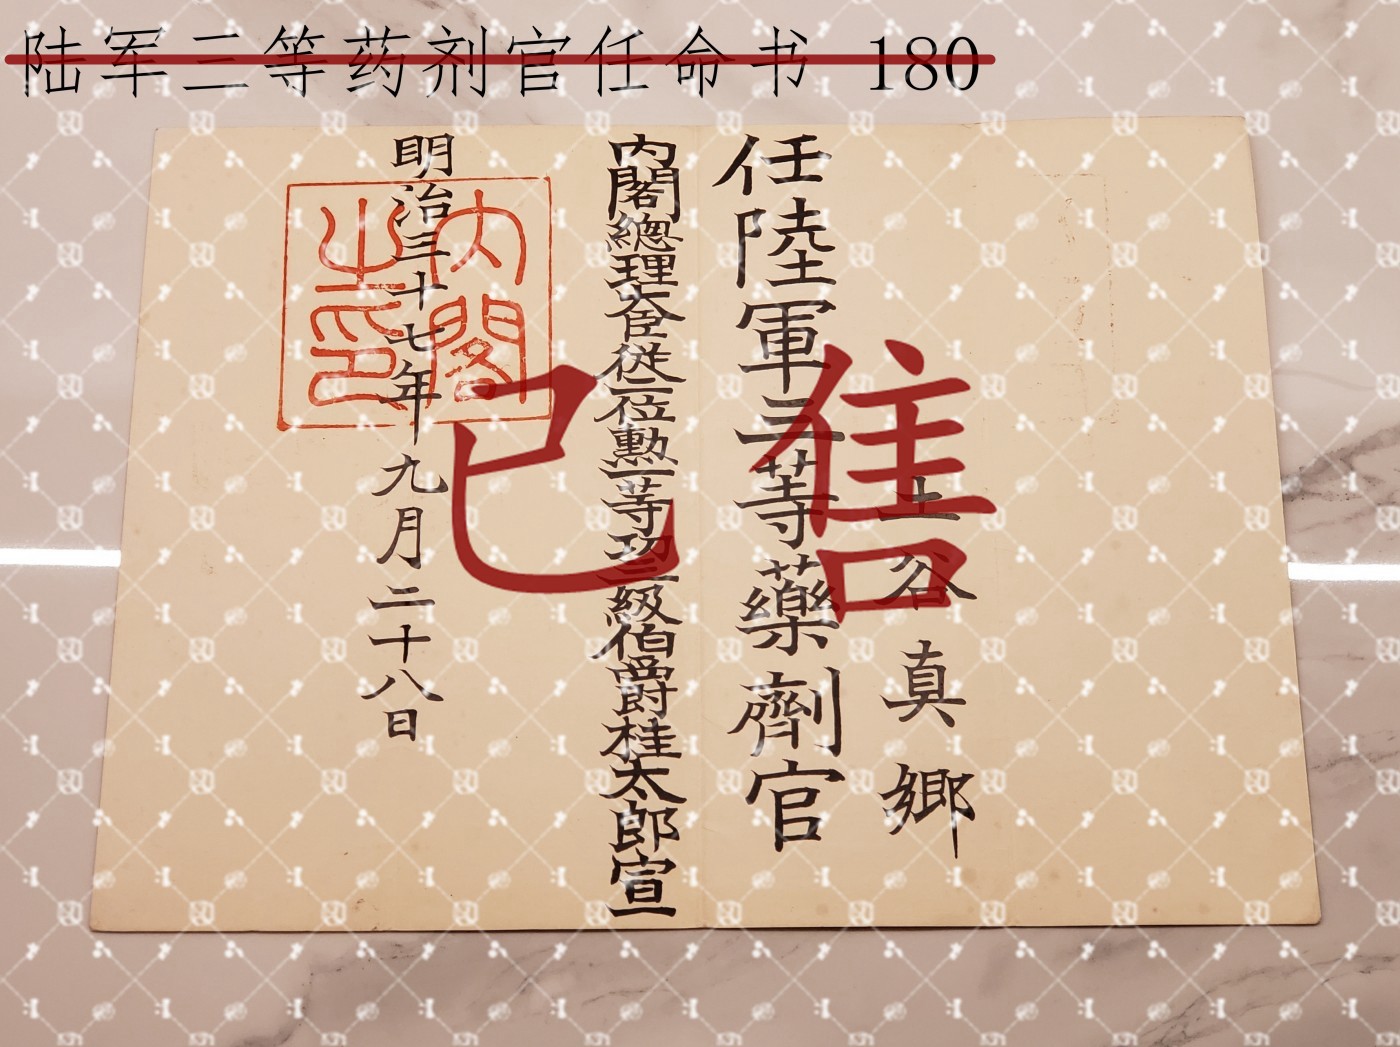 陆军三等药剂官任命书 180
土谷真郷
任陸軍三等藥劑官
内閣總理大臣従二位勲一等功三級伯爵桂太郎宣
明治三十七年九月二十八日
内閣之印
已售